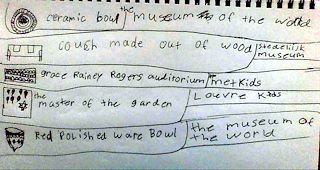 ceramic bowl the museum of the world
cough made out of wood stedelijk museum
grace Rainey Rogers auditorium metkids
the master of the garden Louvre kids
Red Polished Ware Bowl the museum of the world